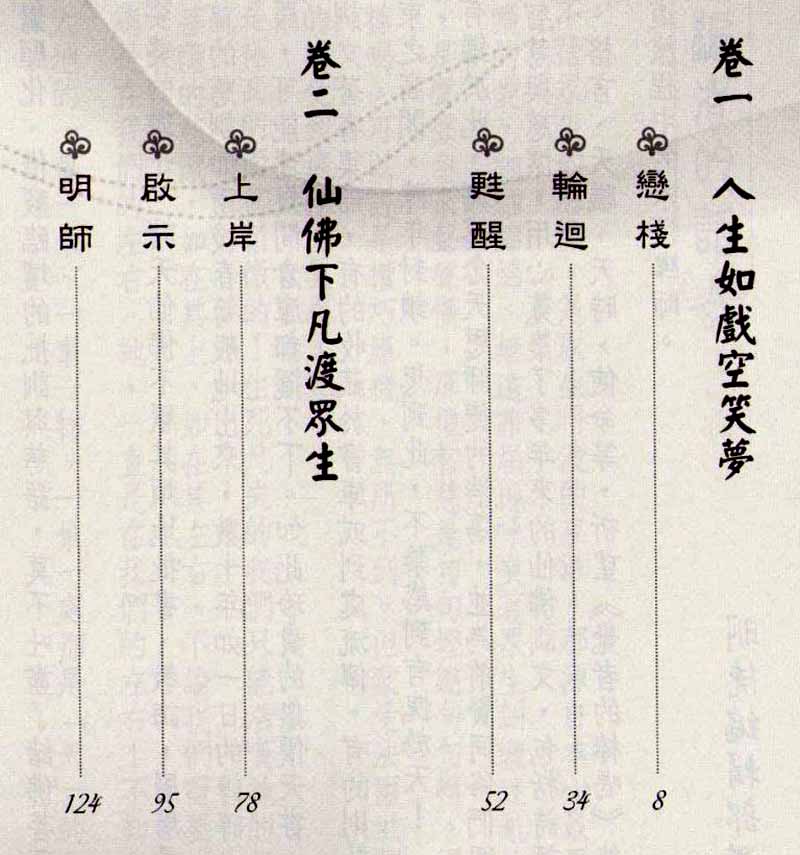 卷一 人生如戲空笑夢
戀棧 8
輪迴 34
甦醒 52
卷二 仙佛下凡渡眾生
上岸 78
啟示 95
明師 124